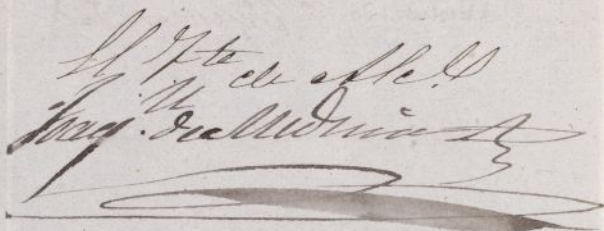 El Tte de Alc.e
Joaq.n de Medina